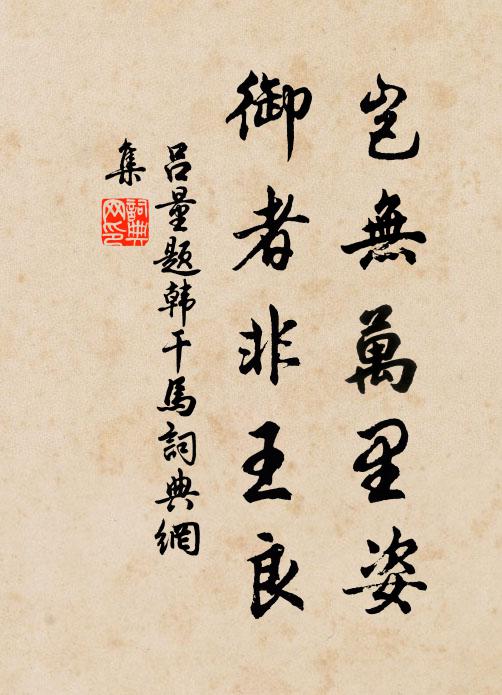 豈無萬里姿
御者非王良
呂量題韩干馬詞典網
集
詞典
网印